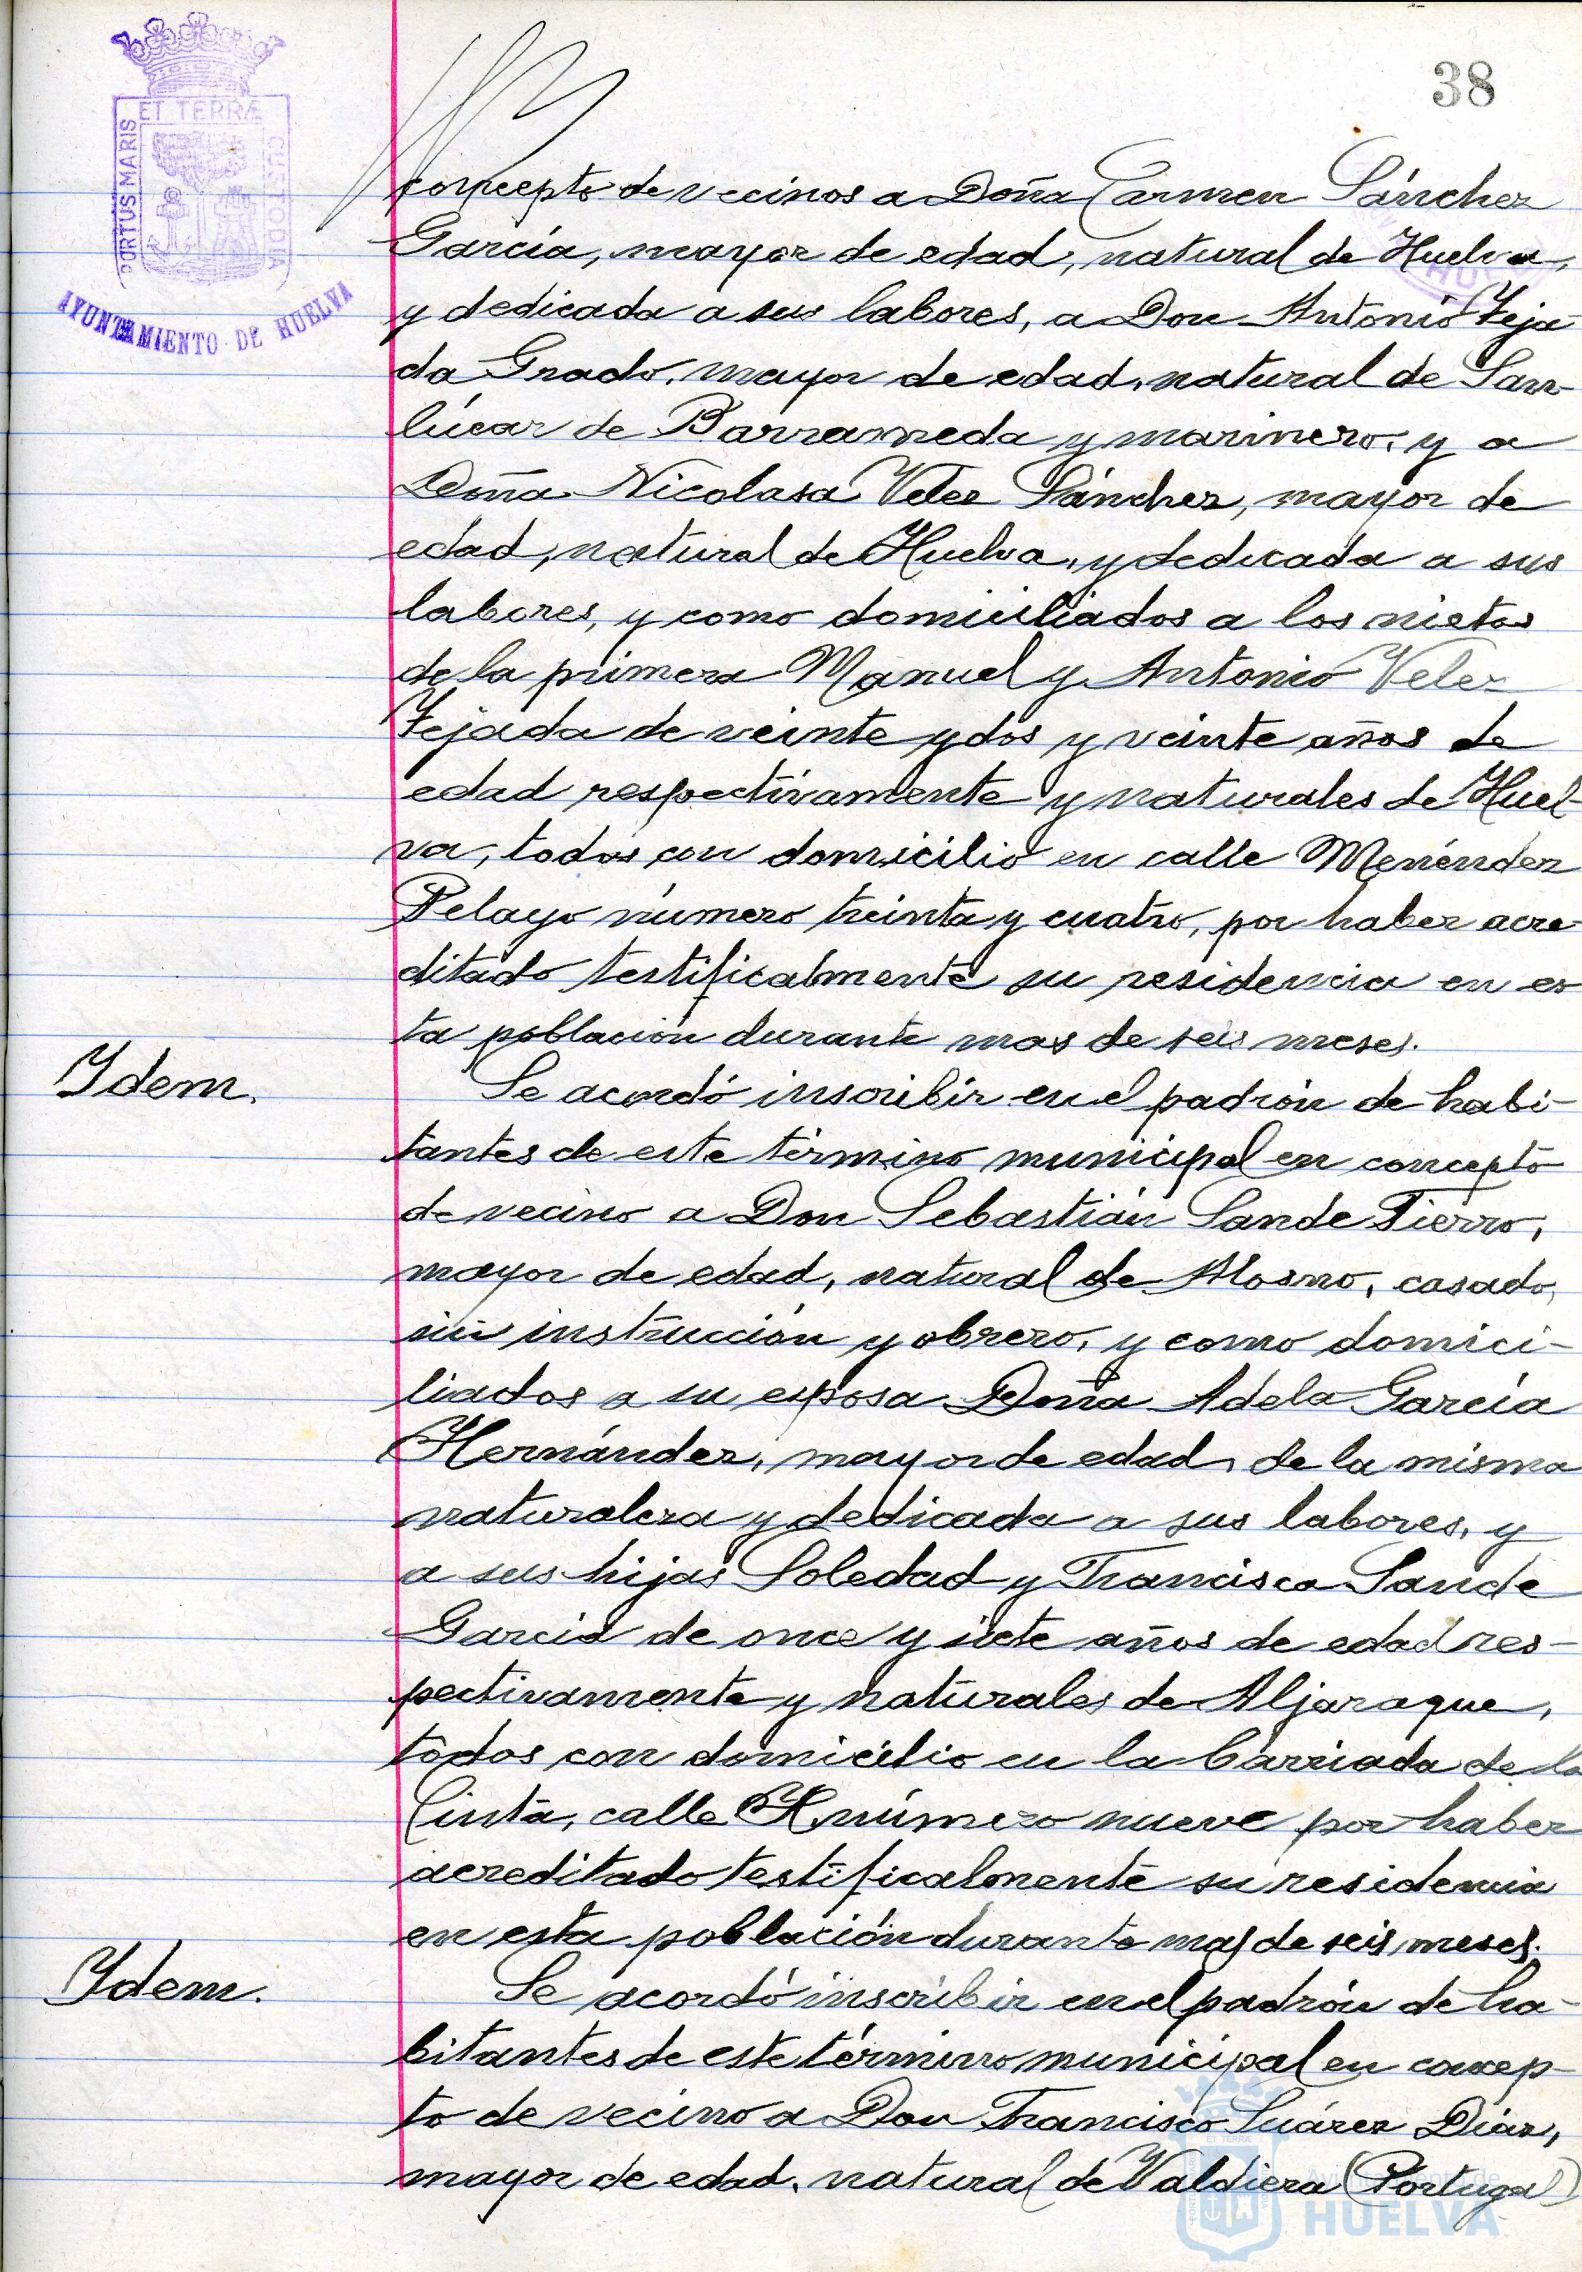 38
ET TERRÆ
PORTUS MARIS
CUSTODIA
AYUNTAMIENTO DE HUELVA
concepto de vecinos a Doña Carmen Sánchez
García, mayor de edad, natural de Huelva,
y dedicada a sus labores, a Don Antonio Teja-
da Grado, mayor de edad, natural de San-
lúcar de Barrameda y marinero, y a
Doña Nicolasa Velez Sánchez, mayor de
edad, natural de Huelva, y dedicada a sus
labores, y como domiciliados a los nietos
de la primera Manuel y Antonio Velez
Tejada de veinte y dos y veinte años de
edad respectivamente y naturales de Huel-
va, todos con domicilio en calle Menéndez
Pelayo número treinta y cuatro, por haber acre-
ditado testificalmente su residencia en es
ta población durante mas de seis meses.
Idem.
Se acordó inscribir en el padrón de habi-
tantes de este término municipal en concepto
de vecino a Don Sebastián Sande Fierro,
mayor de edad, natural de Alosno, casado,
sin instrucción y obrero, y como domici-
liados a su esposa Doña Adela García
Hernández, mayor de edad, de la misma
naturaleza y dedicada a sus labores, y
a sus hijas Soledad y Francisca Sande
García de once y siete años de edad res-
pectivamente y naturales de Aljaraque,
todos con domicilio en la barriada de la
Cinta, calle H número nueve por haber
acreditado testificalmente su residencia
en esta población durante mas de seis meses.
Idem.
Se acordó inscribir en el padrón de ha-
bitantes de este término municipal en concep-
to de vecino a Don Francisco Suárez Díaz,
mayor de edad, natural de Valdiera (Portugal)
Ayuntamiento de
HUELVA